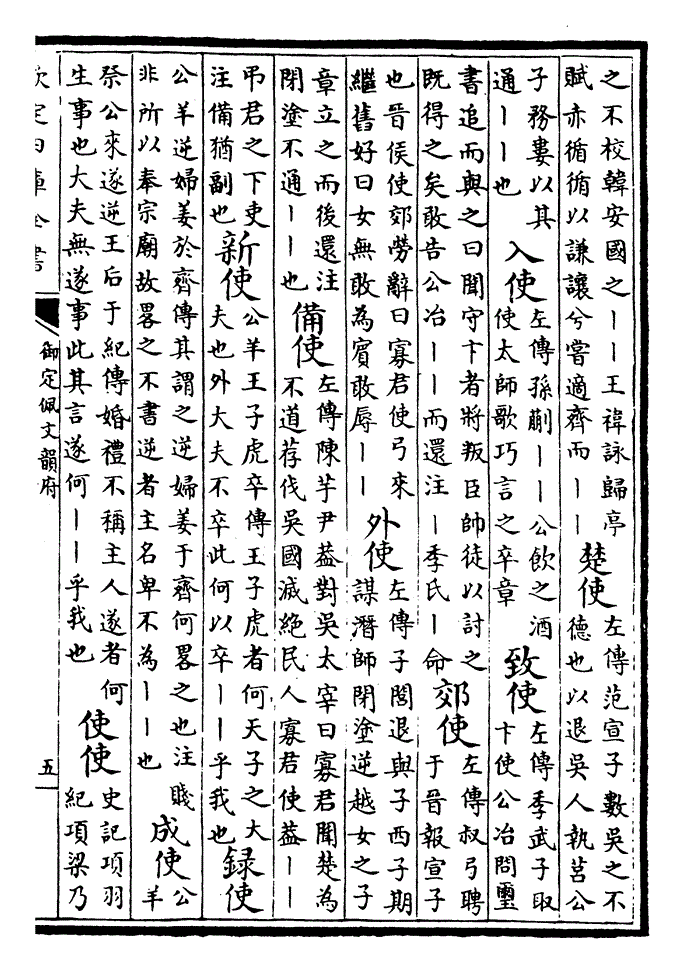 之不校韓安國之丨丨王褘詠歸亭
賦亦循循以謙讓兮嘗適齊而丨丨
楚使
左傳范宣子數吳之不
德也以退吳人執莒公
子務婁以其
通丨丨也
入使
左傳孫蒯丨丨公飲之酒
使太師歌巧言之卒章
致使
左傳季武子取
卞使公冶問璽
書追而與之曰聞守卞者將叛臣帥徒以討之
既得之矣敢告公冶丨丨而還注丨季氏丨命
郊使
左傳叔弓聘
于晉報宣子
也晉侯使郊勞辭曰寡君使弓來
繼舊好曰女無敢為賓敢辱丨丨
外使
左傳子閭退與子西子期
謀潛師閉塗逆越女之子
章立之而後還注
閉塗不通丨丨也
備使
左傳陳芋尹葢對吳太宰曰寡君聞楚為
不道荐伐吳國滅絕民人寡君使葢丨丨
弔君之下吏
注備猶副也
新使
公羊王子虎卒傳王子虎者何天子之大
夫也外大夫不卒此何以卒丨丨乎我也
録使
公羊逆婦姜於齊傳其謂之逆婦姜于齊何畧之也注賤
非所以奉宗廟故畧之不書逆者主名卑不為丨丨也
成使
公
羊
祭公來遂逆王后于紀傳婚禮不稱主人遂者何
生事也大夫無遂事此其言遂何丨丨乎我也
使使
史記項羽
紀項梁乃
欽定四庫全書
御定佩文韻府
五